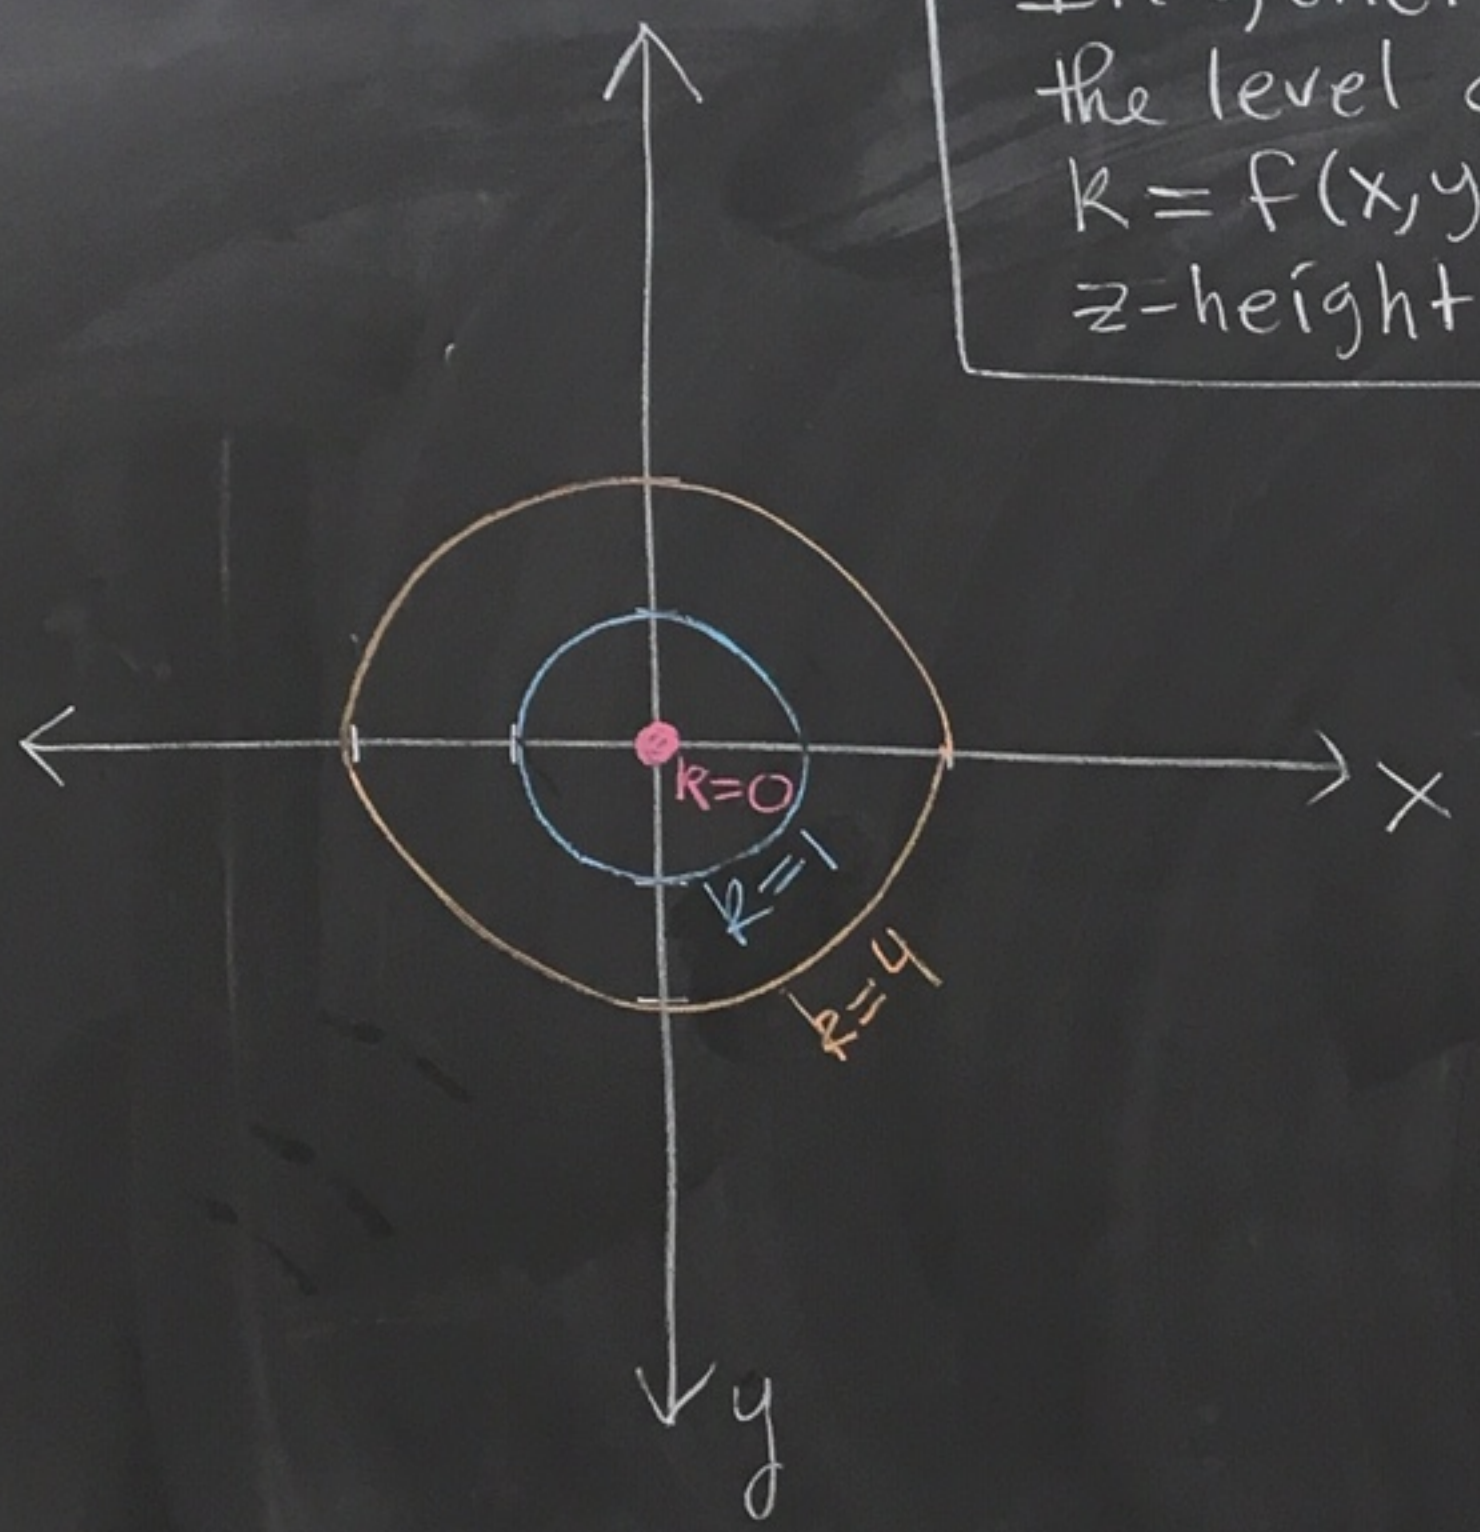 the level
k = f(x,y
z-height
x
k=0
k=1
k=4
y